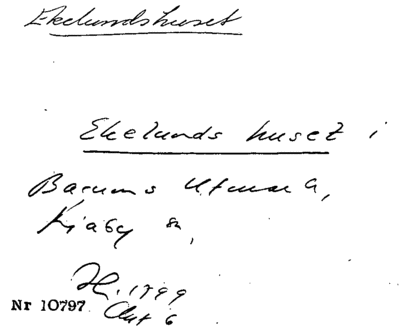 Ekelundshuset
Ekelunds huset i
Barums Utmark,
Kiaby sn,
H. 1799
Akt 6
Nr 10797